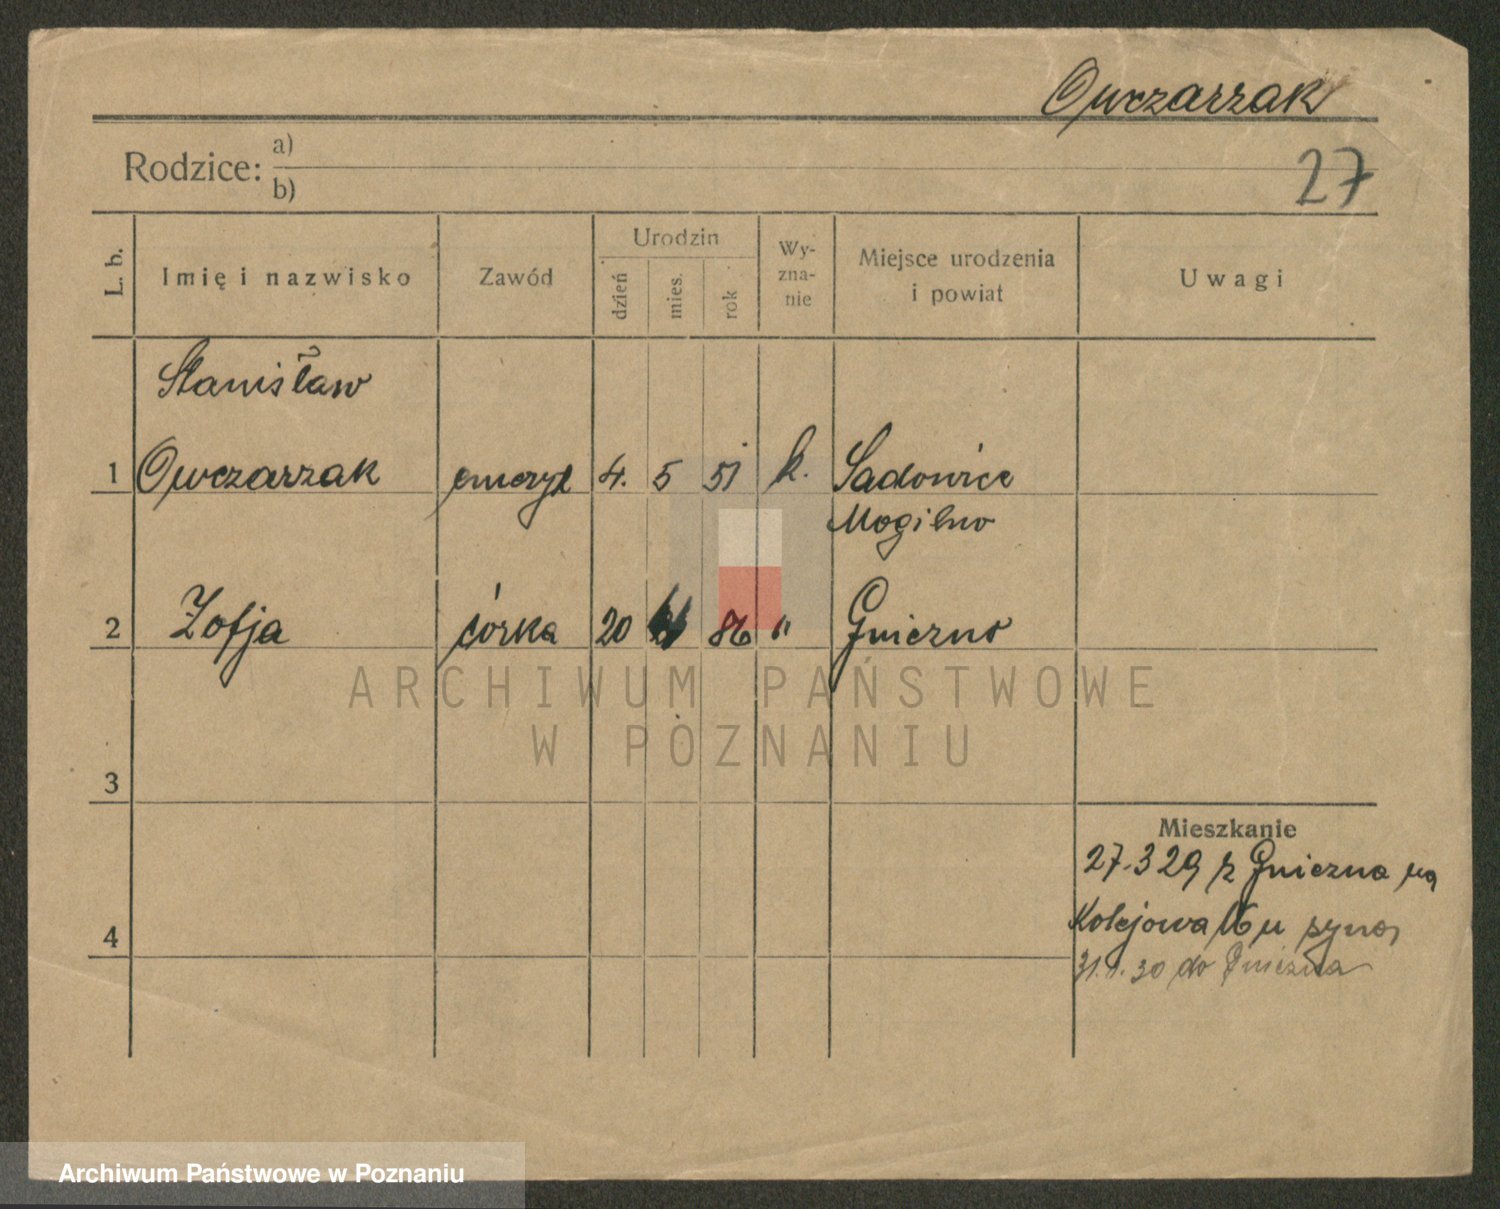 Owczarzak
Rodzice: a)
b)
27
L. b.
Imię i nazwisko
Zawód
Urodzin
dzień
mies.
rok
Wy-
zna-
nie
Miejsce urodzenia
i powiat
Uwagi
Stanisław
1 Owczarzak emeryt 4. 5 51 k. Sadowice
Mogilno
2 Zofja córka 20 86 " Gniezno
ARCHIWUM PAŃSTWOWE
W POZNANIU
3
Mieszkanie
27.3 29 z Gniezna na
Kolejowa 16 u syna,
4
31. .30 do Gniezna
Archiwum Państwowe w Poznaniu